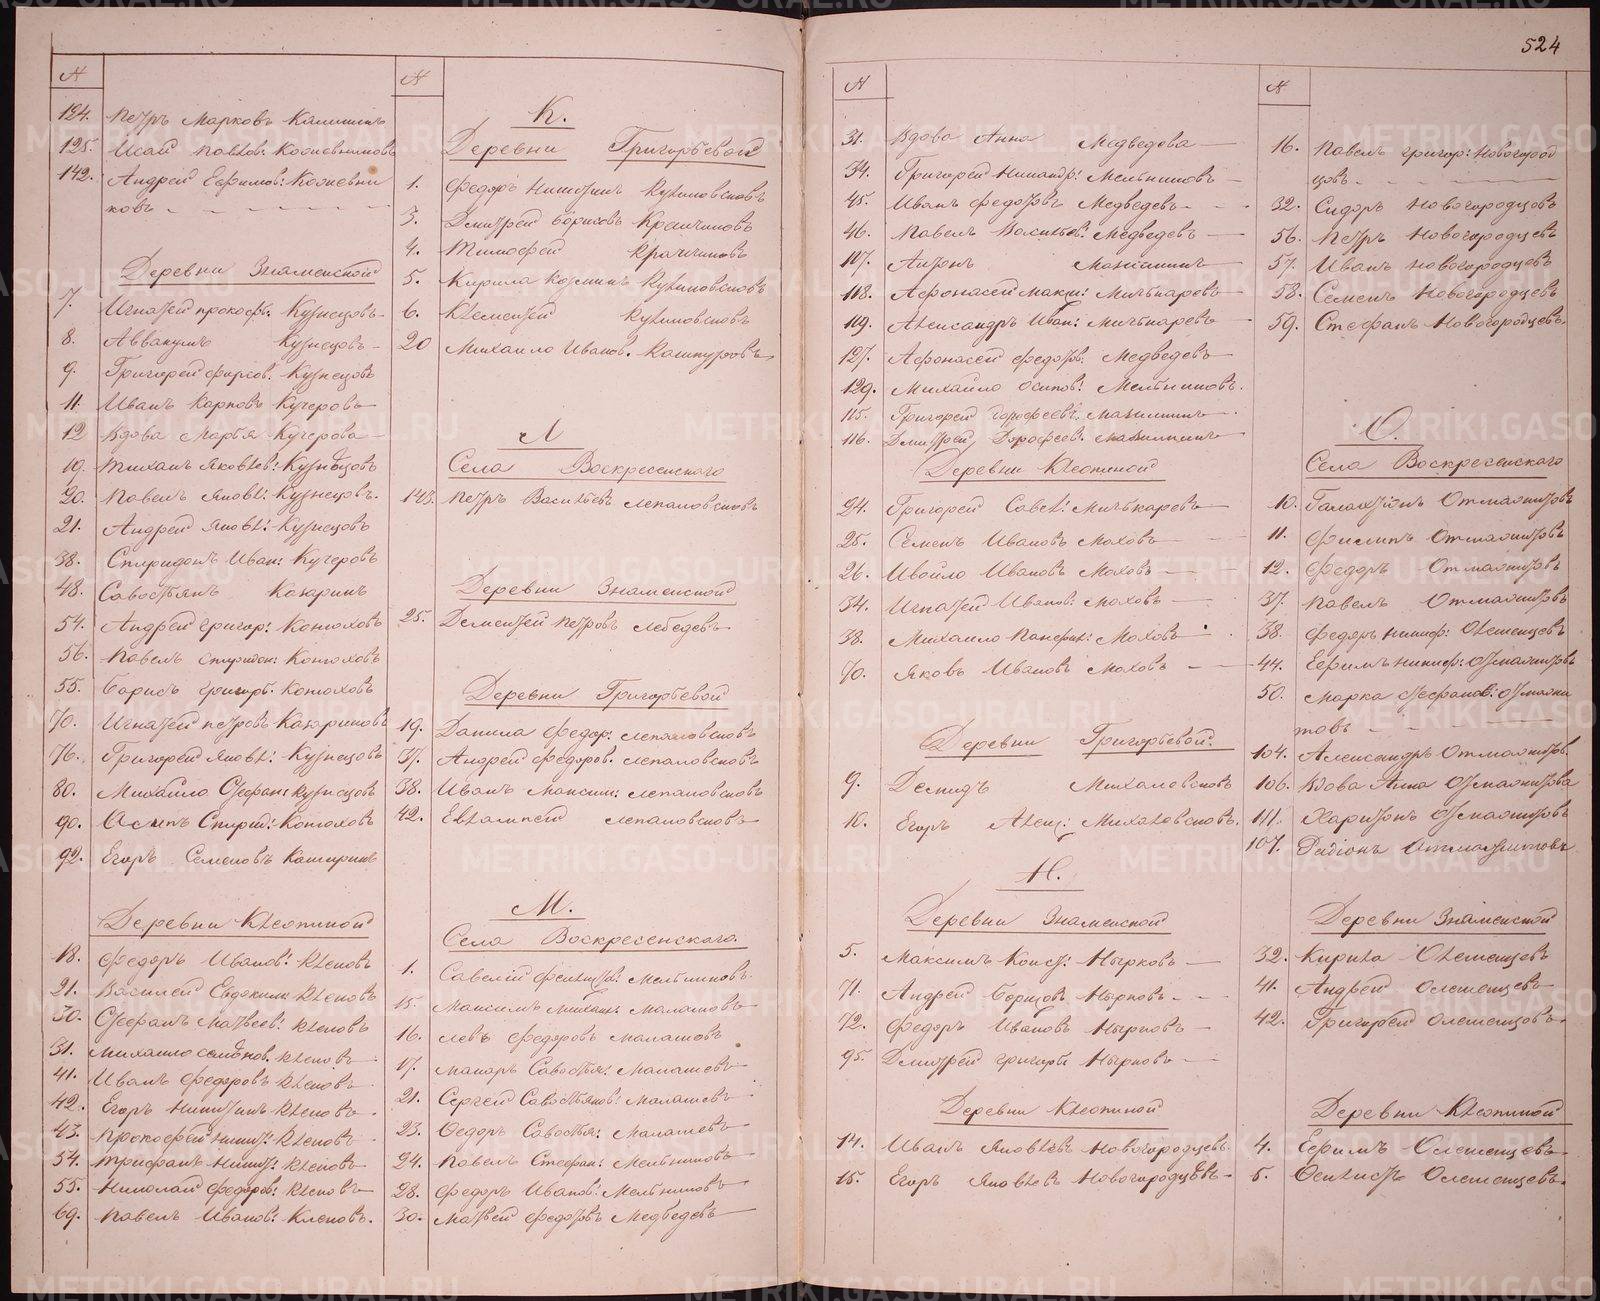 524
№
124. Петръ Марковъ Калининъ
125. Исай Павлов: Кожевниковъ
142. Андрей Ефимов: Кожевни
ковъ - - - - -
Деревни Знаменской
7. Игнатей Прокофь. Кузнецовъ
8. Аввакумъ Кузнецовъ
9. Григорей Фирсов. Кузнецовъ
11. Иванъ Карповъ Кучеровъ
12 Вдова Марья Кучерова
19. Яковлев: Кузнецовъ
20. Павелъ Яковл: Кузнецовъ.
21. Андрей Яковл: Кузнецовъ
38. Спиридонъ Иван: Кучеровъ
48. Савостьянъ
54. Андрей Григор: Конюховъ
56. Павелъ Спиридон: Конюховъ
55. Борисъ Григорь. Конюховъ
70. Игнатей Петровъ
76. Григорей Яковл: Кузнецовъ
80. Михайло Стефан: Кузнецовъ
90. Осипъ Спирид: Конюховъ
92. Егоръ Семеновъ Каширинъ
Деревни Клеопиной
18. Федоръ Иванов: Клеповъ
21. Василей Евдоким: Клеповъ
30. Стефанъ Матвеев: Клеповъ
31. Михайло Семенов. Клеповъ
41. Иванъ Федоровъ Клеповъ
42. Егоръ Никитинъ Клеповъ
43. Прокофей Никит: Клеповъ
54. Трифанъ Никит: Клеповъ
55. Николай Федоров: Клеповъ
69. Павелъ Иванов: Клеповъ.
№
К.
Деревни Григорьевой
1. Федоръ Никитинъ
3. Дмитрей Борисовъ
4. Тимофей
5. Кирила Козминъ
6. Клементей
20 Михайло Иванов. Кашкуровъ
Л
Села Воскресенскаго
143. Петръ Васильевъ Лепаловсковъ
Деревни Знаменской
25. Дементей Петровъ Лебедевъ
Деревни Григорьевой
19. Данила Федор: Лепаловсковъ
37. Андрей Федоров. Лепаловсковъ
38. Иванъ Максим: Лепаловсковъ
42. Евлампей Лепаловсковъ
М.
Села Воскресенскаго.
1. Савелий Мельниковъ
15. Максимъ Малашовъ
16. Левъ Федоровъ Малашовъ
17. Макаръ Савостья: Малашевъ
21. Сергей Савостьянов: Малашевъ
23. Федоръ Савостья: Малашевъ
24. Павелъ Стефан: Мельниковъ
28. Федоръ Иванов: Мельниковъ
30. Матвей Федотовъ Медведевъ
№
31. Вдова Анна Медведова
34. Григорей Никандр: Мельниковъ
45. Иванъ Федотовъ Медведевъ
46. Павелъ Васильев: Медведевъ
117. Антонъ
118. Афонасей Макси: Мичькаревъ
119. Александръ Иван: Мичькаревъ
127. Афонасей Федотов: Медведевъ
129. Михайло Осипов: Мельниковъ.
115. Григорей Дорофеевъ
116. Дмитрей Дорофеев.
Деревни Клеопиной
24. Григорей Савел: Мичькаревъ
25. Семенъ Ивановъ Моховъ
26. Ивойло Ивановъ Моховъ
34. Игнатей Иванов: Моховъ
38. Михайло Панфил: Моховъ
70. Яковъ Ивановъ Моховъ
Деревни Григорьевой.
9. Демидъ Михаловсковъ
10. Егоръ Алек: Михаловсковъ.
Н.
Деревни Знаменской
5. Максимъ Конст: Нырковъ
71. Андрей Борисовъ Нырковъ
72. Федоръ Ивановъ Нырковъ
95. Дмитрей Григорь Нырковъ
Деревни Клеопиной
14. Иванъ Яковлевъ Новогородцевъ
15. Егоръ Яковлевъ Новогородцевъ
№
16. Павелъ Григор: Новогород
цовъ
32. Сидоръ Новогородцовъ
56. Петръ Новогородцевъ
57. Иванъ Новогородцевъ
58. Семенъ Новогородцевъ
59. Стефанъ Новогородцевъ.
О.
Села Воскресенскаго
10. Галактионъ Отмахитовъ
11. Филипъ Отмахитовъ
12. Федоръ Отмахитовъ
37. Павелъ Отмахитовъ
38. Федоръ Никиф: Олешенцевъ
44. Ефимъ Никиф: Отмахитовъ
50. Марка Стефанов: Отмахи
товъ
104. Александръ Отмахитов.
106. Вдова Анна Отмахитова
111. Харитонъ Отмахитовъ
107. Радіонъ Отмахитовъ
Деревни Знаменской
32. Кирила Олешенцевъ
41. Андрей Олешенцевъ
42. Григорей Олешенцовъ.
Деревни Клеопиной
4. Ефимъ Олешенцевъ
5. Феклистъ Олешенцевъ.